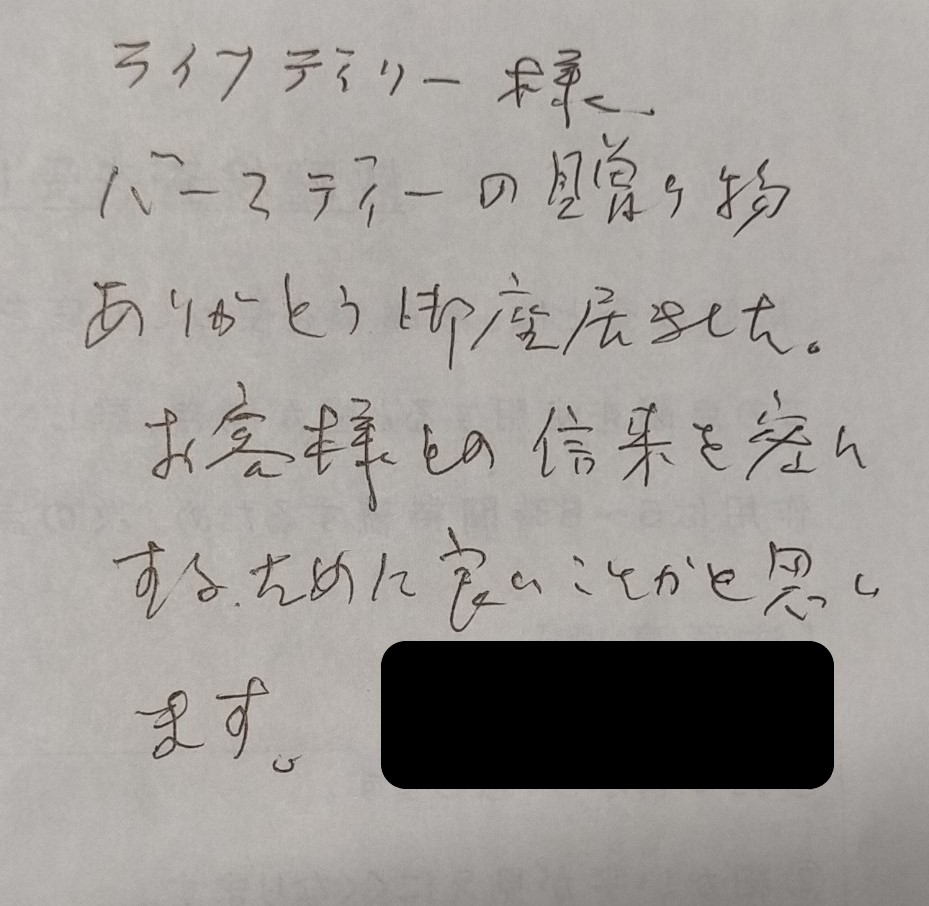 ライフテイリー様
バースディーの贈り物
ありがとう御座居ました。
お客様との信来を密に
するために良いことかと思い
ます。